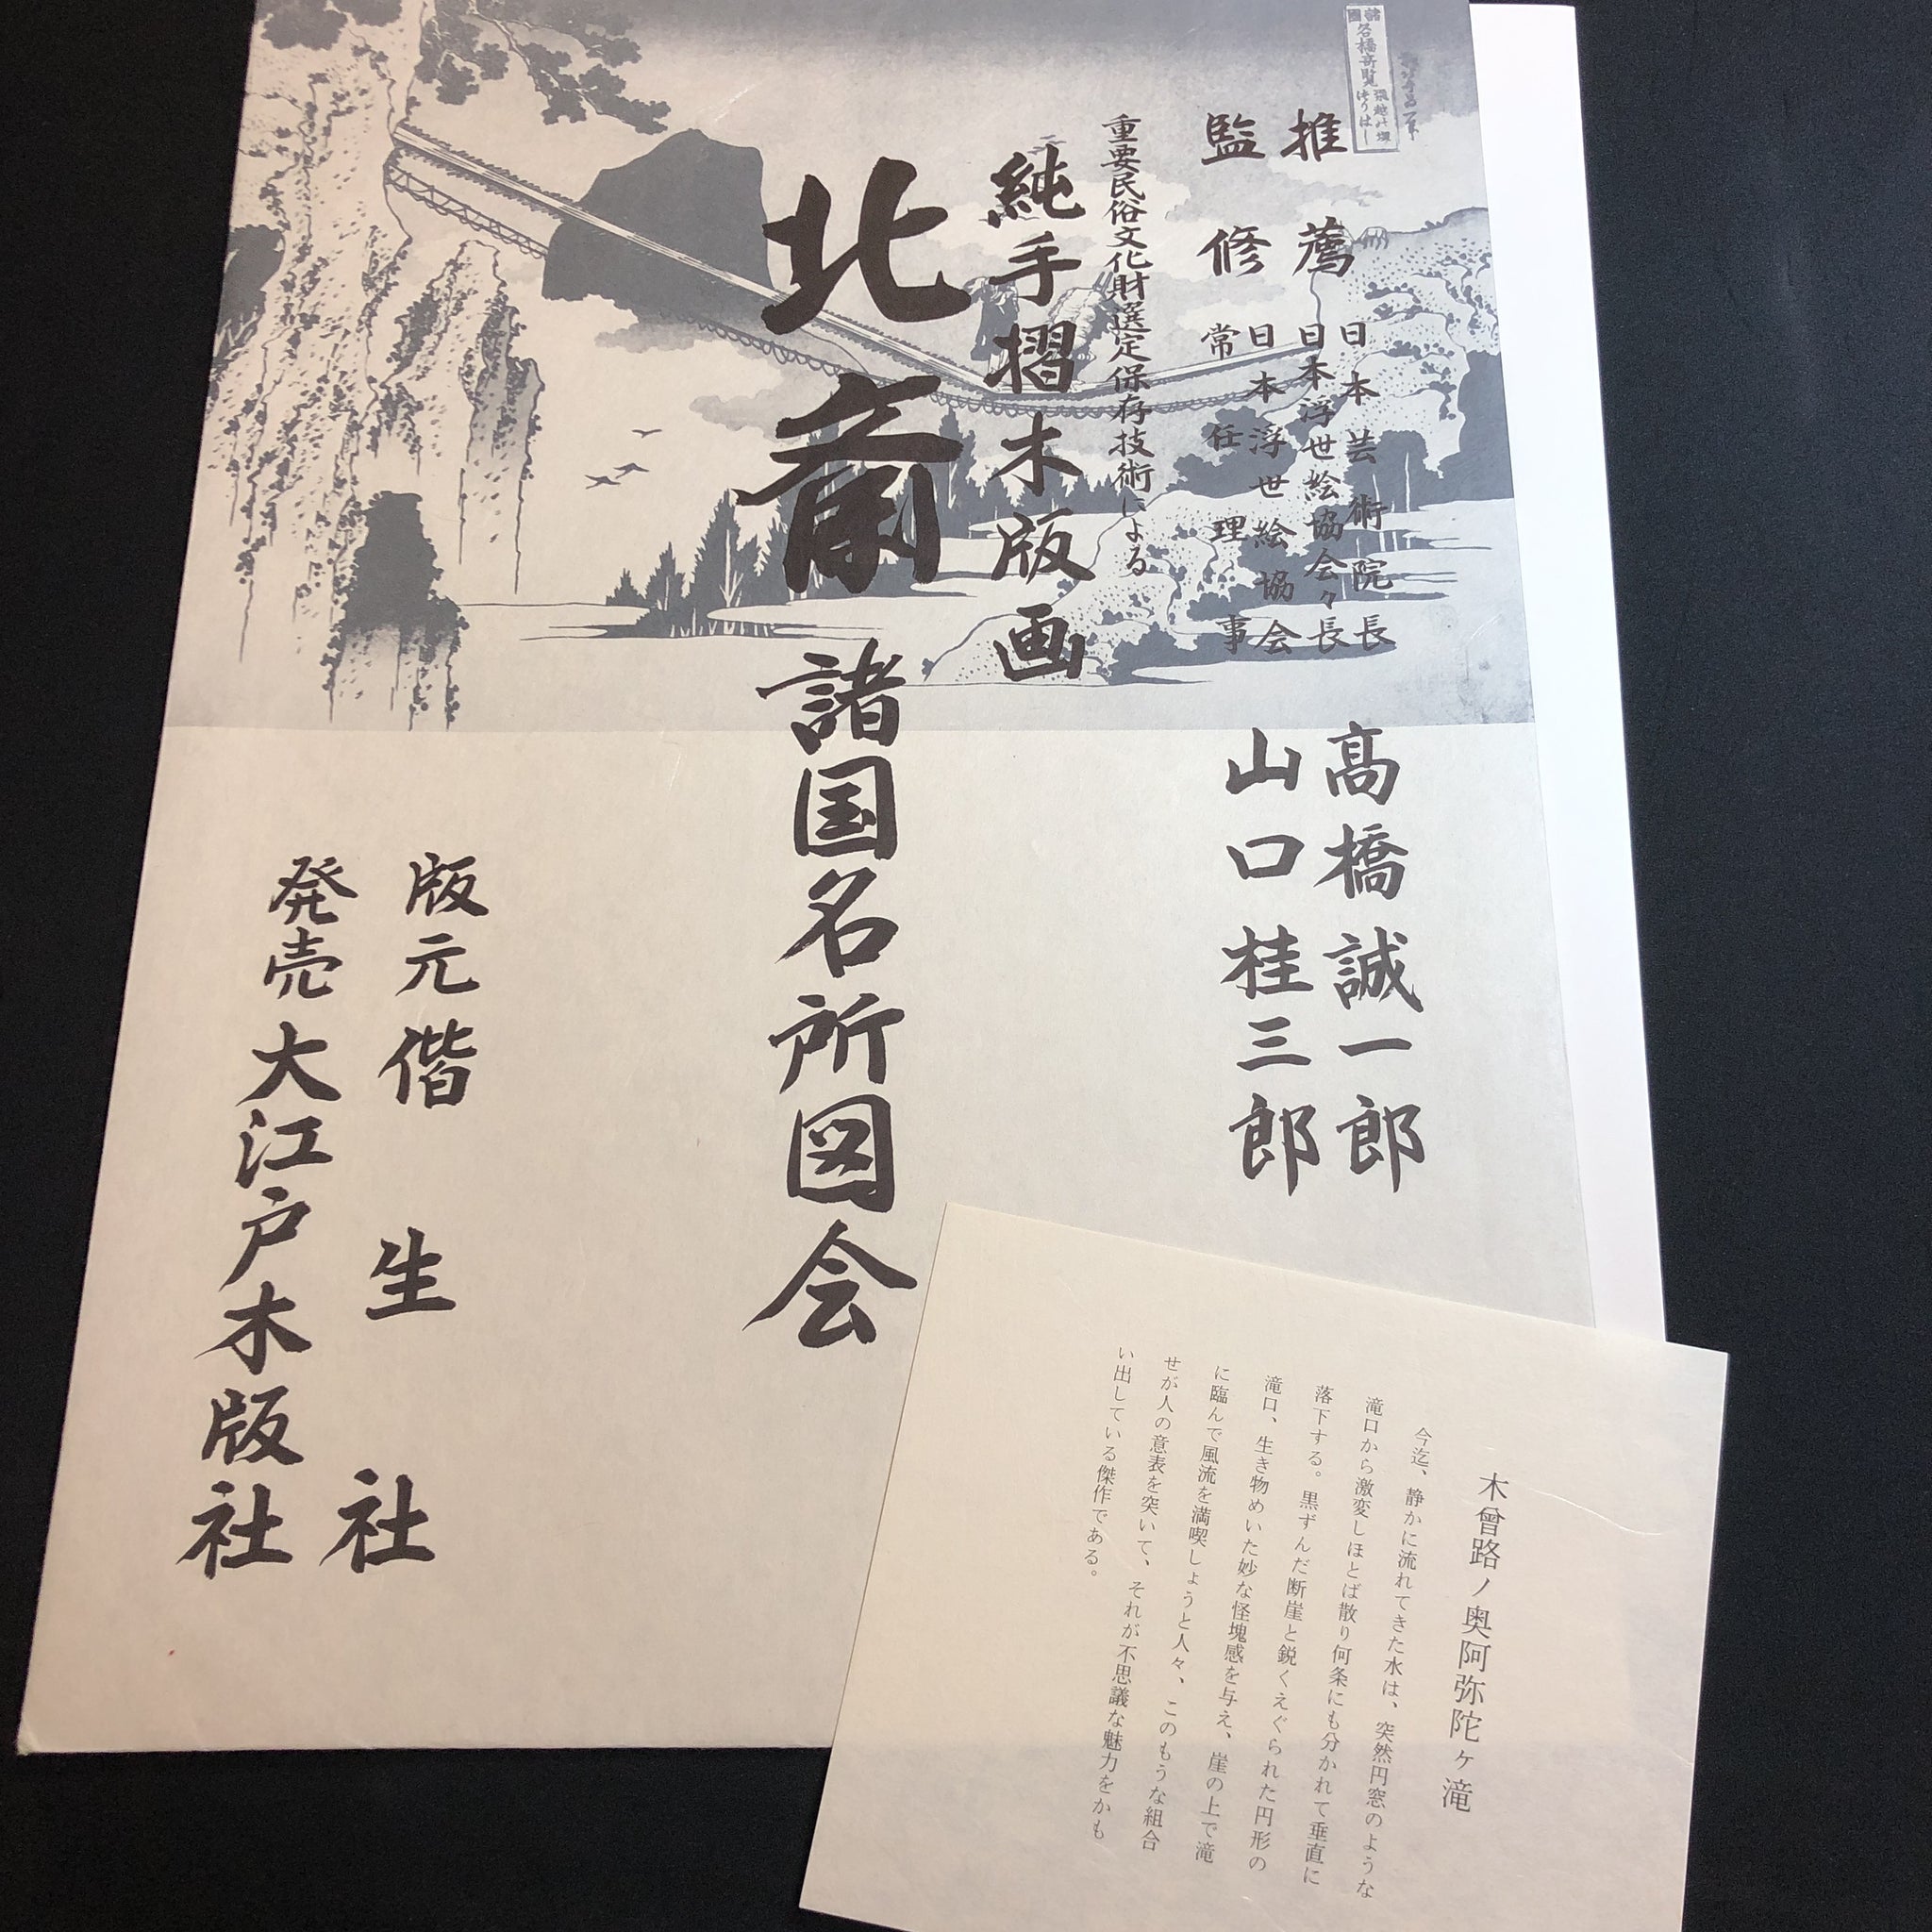 諸國
名橋奇覧
飛越の堺
つりはし
推薦
日本芸術院長
日本浮世絵協会々長
高橋誠一郎
監修
日本浮世絵協会
常任理事
山口桂三郎
重要民俗文化財選定保存技術による
純手摺木版画
北斎
諸国名所図会
版元偕生社
発売大江戸木版社
木曽路ノ奥阿弥陀ヶ滝
今迄、静かに流れてきた水は、突然円窓のような
滝口から激変しほとば散り何条にも分かれて垂直に
落下する。黒ずんだ断崖と鋭くえぐられた円形の
滝口、生き物めいた妙な怪塊感を与え、崖の上で滝
に臨んで風流を満喫しょうと人々、このもうな組合
せが人の意表を突いて、それが不思議な魅力をかも
い出している傑作である。